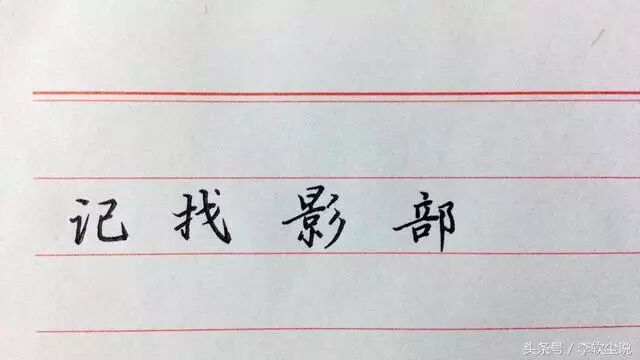 记找影部
头条号／李软尘说